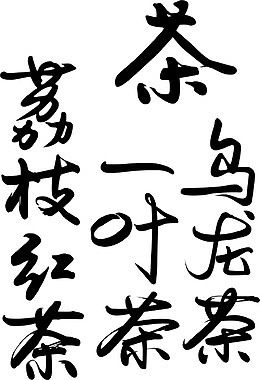 茶
乌龙茶
一叶茶
荔枝红茶